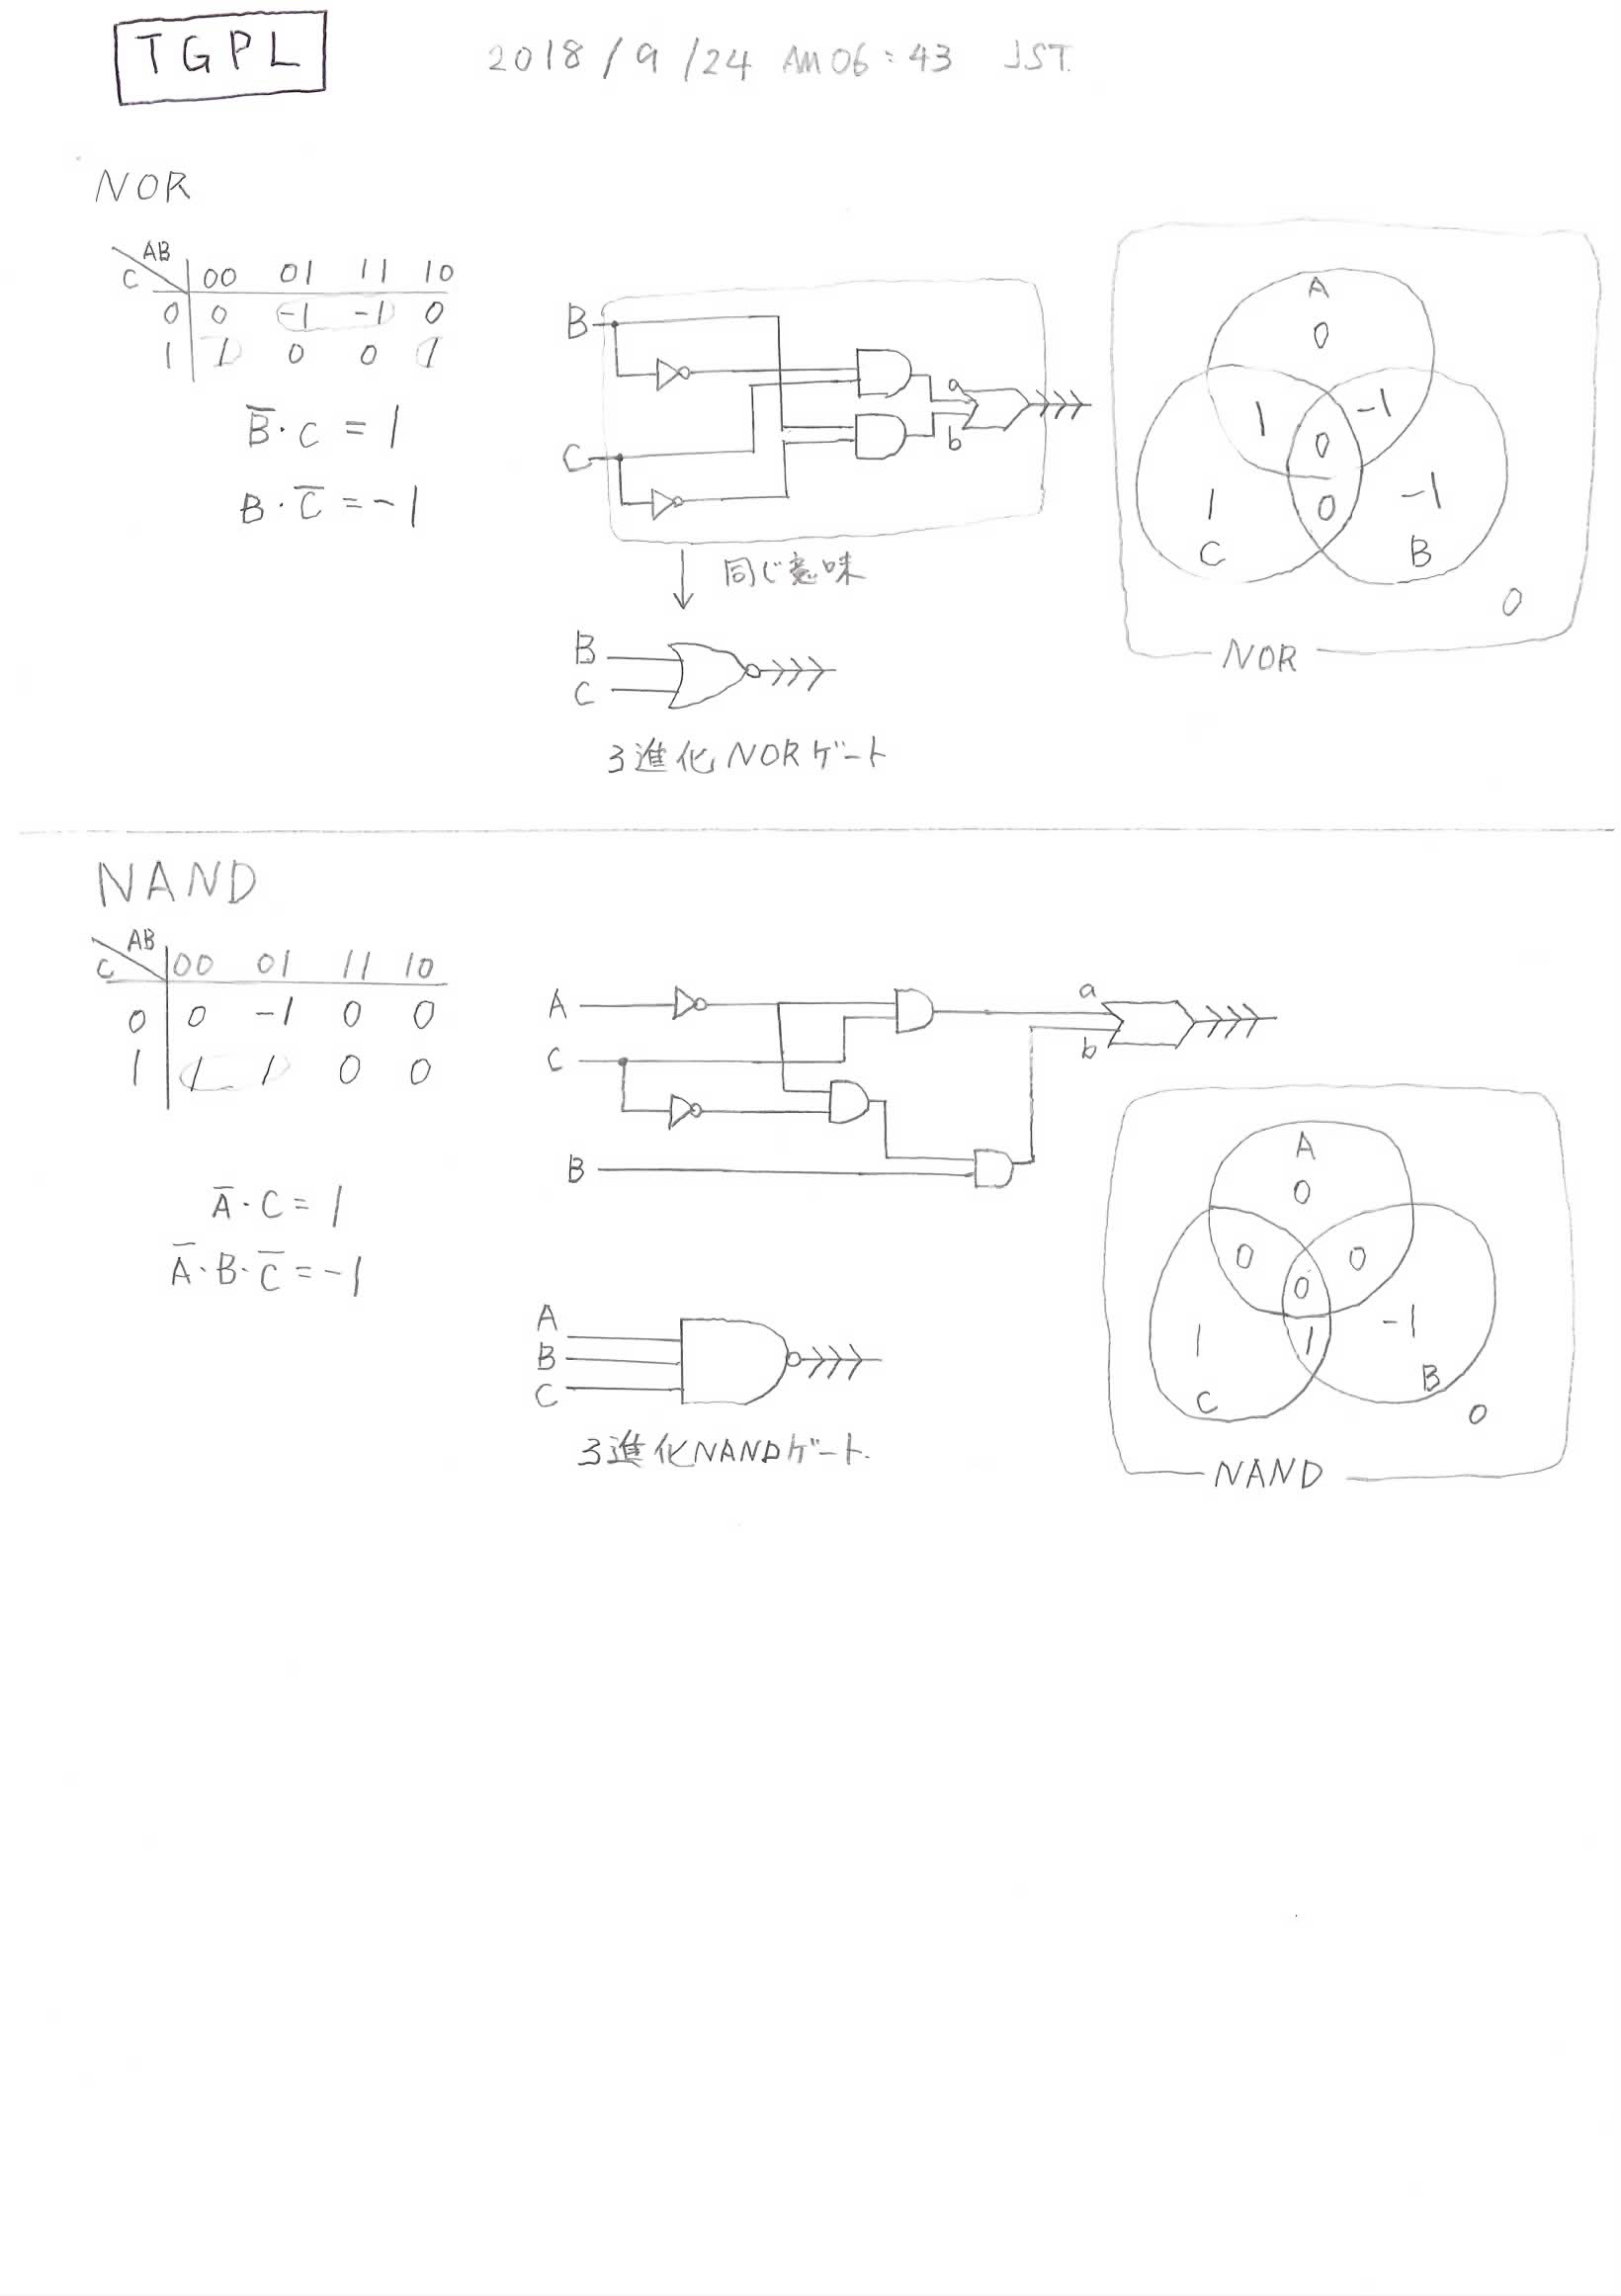 TGPL
2018/9/24 AM 06:43 JST.
NOR
AB
C 00 01 11 10
0 0 -1 -1 0
1 1 0 0 1
B̅・C = 1
B・C̅ = -1
B
C
a
b
同じ意味
B
C
3進化NORゲート
A
0
1 -1
0
1 0 -1
C B
0
NOR
NAND
AB
C 00 01 11 10
0 0 -1 0 0
1 1 1 0 0
A̅・C = 1
A̅・B・C̅ = -1
A
C
B
a
b
A
B
C
3進化NANDゲート.
A
0
0 0
0
1 1 -1
C B
0
NAND